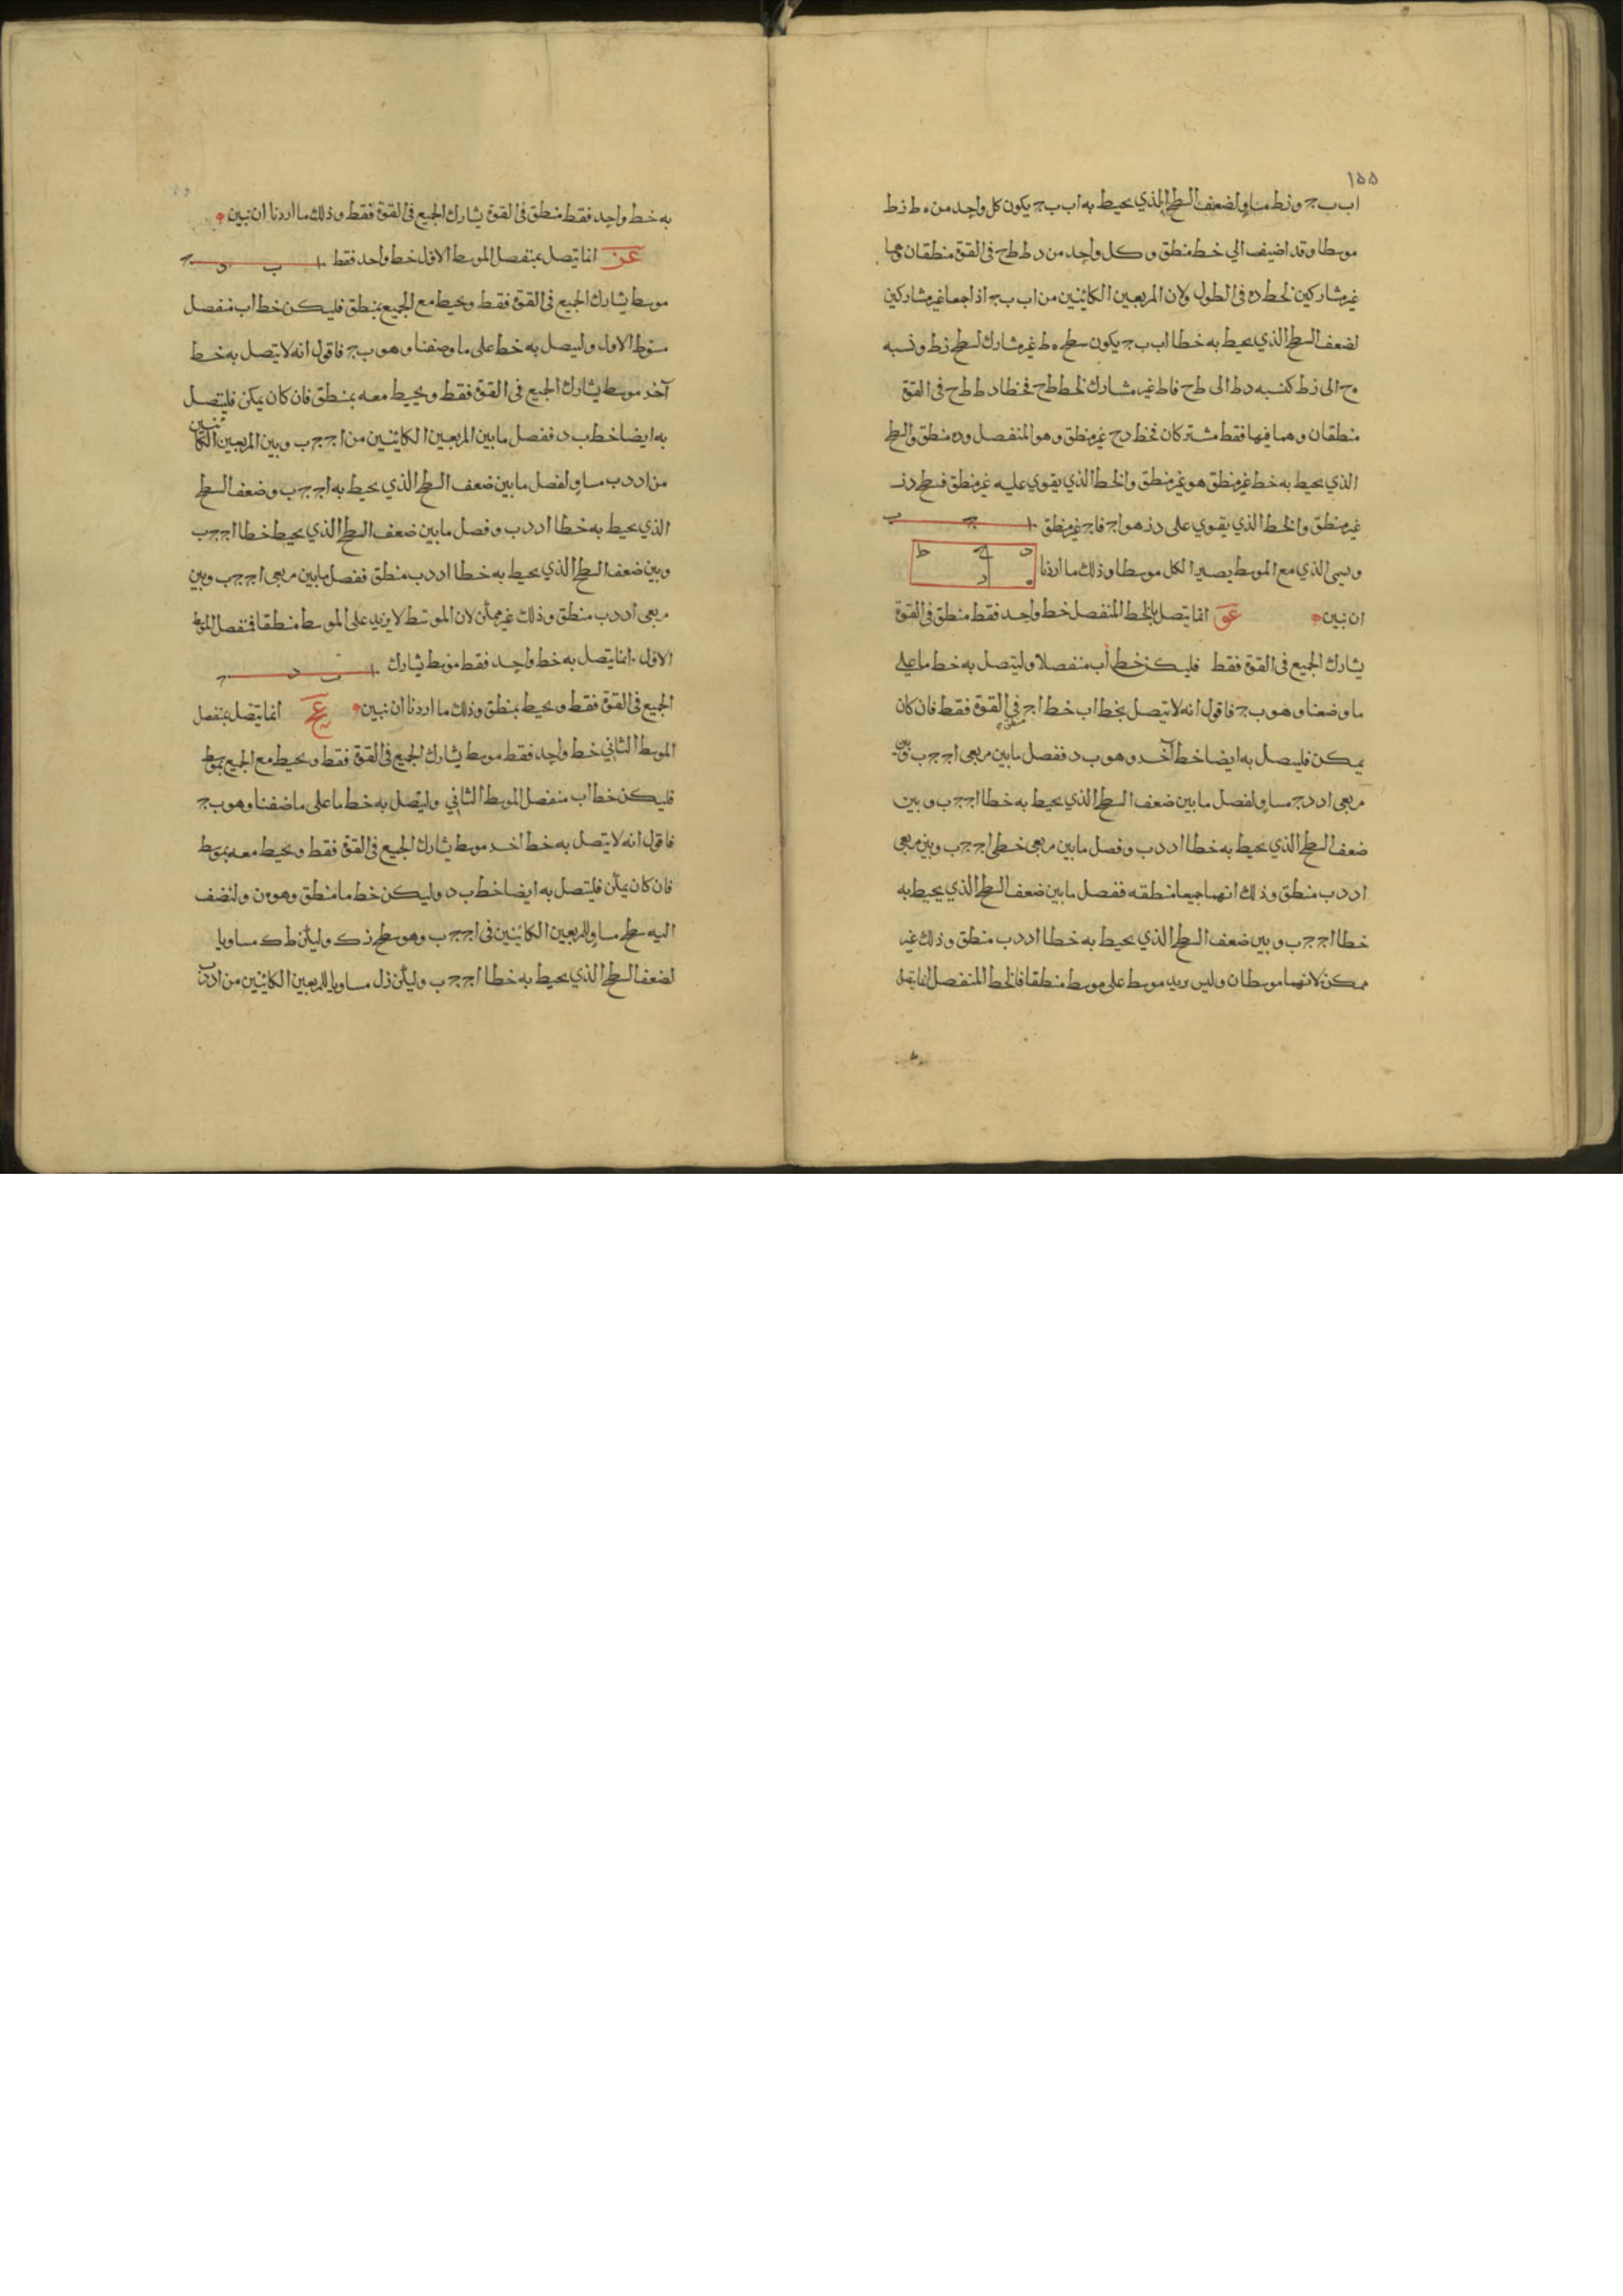 ١٥٥
اب ب ج و زط مساو لضعف السطح الذي يحيط به اب ب ج يكون كل واحد من ه ط زط
موسطا وقد اضيف الي خط منطق وكل واحد من د ط ط ح فى القوة منطقان وهما
غير مشاركين لخط ده فى الطول ولان المربعين الكائنين من اب ب ج اذا جمعا غير مشاركين
لضعف السطح الذي يحيط به خطا اب ب ج يكون سطح ه ط غير مشارك لسطح زط ونسبه
ه ح الى زط كنسبه د ط الى ط ح فاط غير مشارك لخط ط ح فخطا د ط ط ح فى القوة
منطقان وهما فيها فقط مشتركان فخط د ح غير منطق وهو المنفصل و ده منطق والسطح
الذي يحيط به خط غير منطق هو غير منطق والخط الذي يقوي عليه غير منطق فسطح د ز
غير منطق والخط الذي يقوي على د ز هو اج فاج غير منطق ا ج ب
ويسمى الذي مع الموسط يصير الكل موسطا وذلك ما اردنا د ح ط ه د
ان نبين عو انما يتصل بالخط المنفصل خط واحد فقط منطق فى القوة
يشارك الجميع فى القوة فقط فليكن خط اب منفصلا وليتصل به خط ما على
ما وضعنا وهو ب ج فاقول انه لا يتصل بخط اب خط اج فى القوة منطق فقط فان كان
يمكن فليصل به ايضا خط آخر وهو ب د ففصل ما بين مربعى اج ج ب وبين
مربعى اد د ج مساو لفصل ما بين ضعف السطح الذي يحيط به خطا اج ج ب وبين
ضعف السطح الذي يحيط به خطا اد د ب وفصل ما بين مربعى خطى اج ج ب وبين مربعى
اد د ب منطق وذلك انهما جميعا منطقه ففصل ما بين ضعف السطح الذي يحيط به
خطا اج ج ب وبين ضعف السطح الذي يحيط به خطا اد د ب منطق وذلك غير
ممكن لانهما موسطان وليس يزيد موسط على موسط منطقا فالخط المنفصل انما يتصل
به خط واحد فقط منطق فى القوة يشارك الجميع فى القوة فقط وذلك ما اردنا ان نبين
عز انما يتصل بمنفصل الموسط الاول خط واحد فقط ا ب د ج
موسط يشارك الجميع فى القوة فقط ويحيط مع الجميع بمنطق فليكن خط اب منفصل
متوسط الاول وليصل به خط على ما وصفنا وهو ب ج فاقول انه لا يتصل به خط
آخر موسط يشارك الجميع فى القوة فقط ويحيط معه بمنطق فان كان يمكن فليتصل
به ايضا خط ب د ففصل ما بين المربعين الكائنين من اج ج ب وبين المربعين الكائنين
من اد د ب مساو لفصل ما بين ضعف السطح الذي يحيط به اج ج ب وضعف السطح
الذي يحيط به خطا اد د ب وفصل ما بين ضعف السطح الذي يحيط خطا اج ج ب
وبين ضعف السطح الذي يحيط به خطا اد د ب منطق ففصل ما بين مربعى اج ج ب وبين
مربعى اد د ب منطق وذلك غير ممكن لان الموتسط لا يزيد على الموسط منطقا فمنفصل الموسط
الاول انما يتصل به خط واحد فقط موسط يشارك ا ب د ج
الجميع فى القوة فقط ويحيط بمنطق وذلك ما اردنا ان نبين عح انما يتصل بمنفصل
الموسط الثاني خط واحد فقط موسط يشارك الجميع فى القوة فقط ويحيط مع الجميع بموسط
فليكن خط اب منفصل الموسط الثاني وليتصل به خط ما على ما ضفنا وهو ب ج
فاقول انه لا يتصل به خط اخر موسط يشارك الجميع فى القوة فقط ويحيط معه بموسط
فان كان يمكن فليتصل به ايضا خط ب د وليكن خط ما منطق وهو ه ن ولنضف
اليه سطح مساو للمربعين الكائنين فى اج ج ب وهو سطح ز ك وليكن ط ك مساويا
لضعف السطح الذي يحيط به خطا اج ج ب وليكن ز ل مساويا للمربعين الكائنين من اد د ب